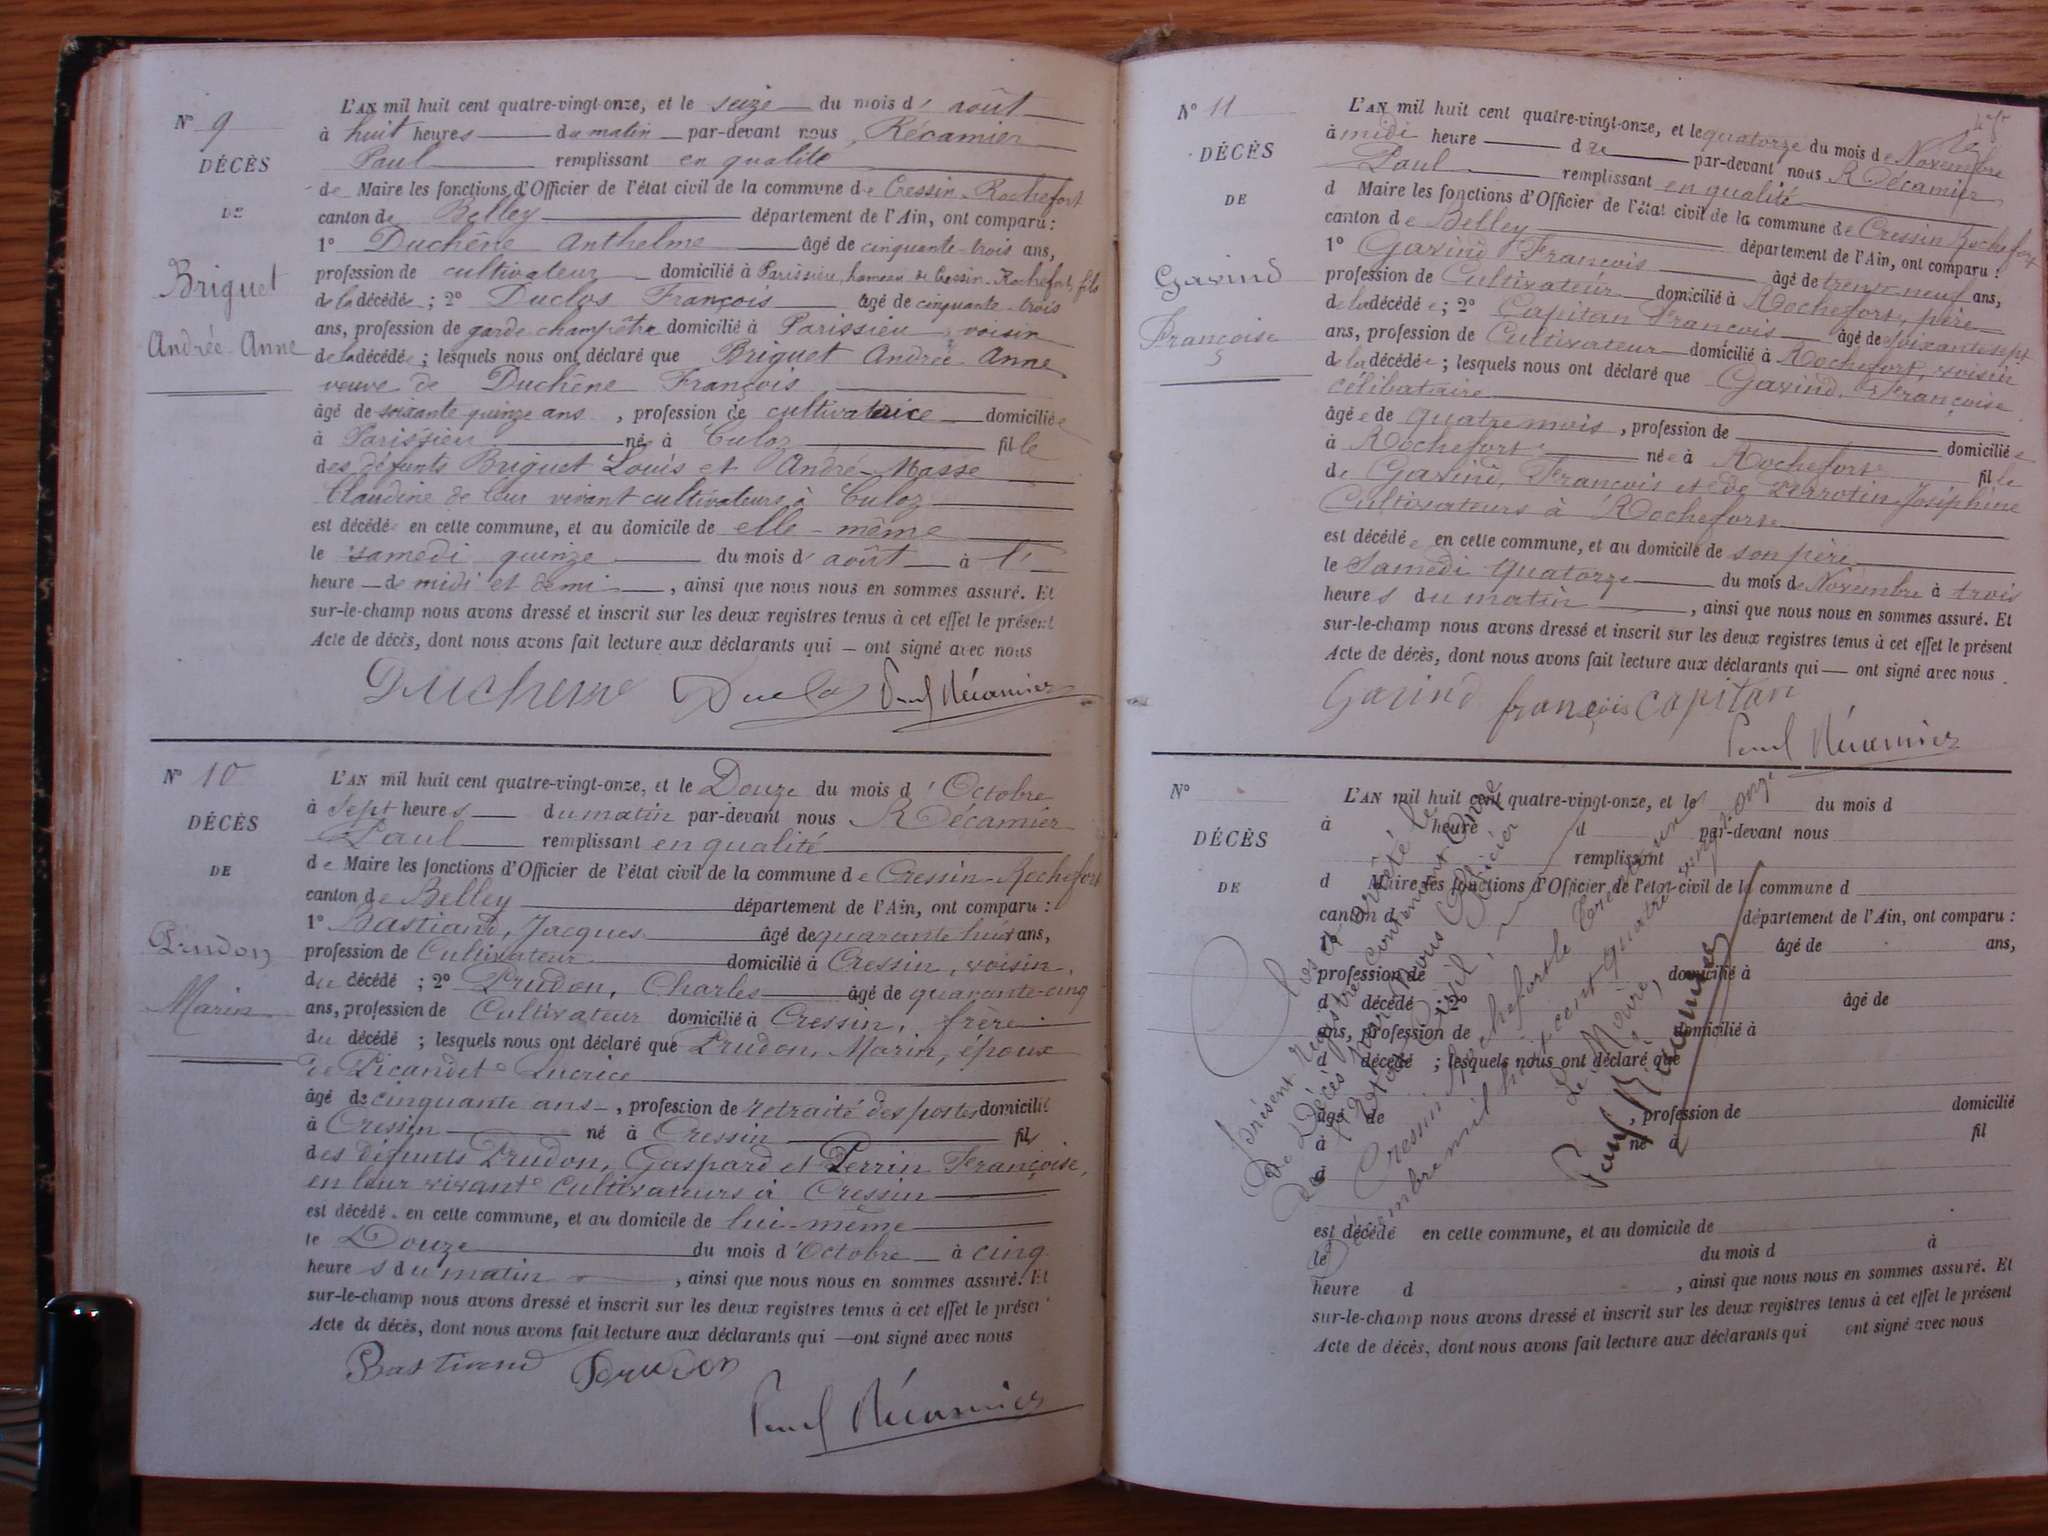 N° 9
DÉCÈS
DE
Briguet
Andrée-Anne
L'AN mil huit cent quatre-vingt-onze, et le seize du mois d' août
à huit heures du matin par-devant nous Récamier
Paul remplissant en qualité
de Maire les fonctions d'Officier de l'état civil de la commune de Cressin-Rochefort
canton de Belley département de l'Ain, ont comparu :
1° Duchêne Anthelme âgé de cinquante-trois ans,
profession de cultivateur domicilié à Parissieu, hameau de Cressin-Rochefort, fils
de la décédée ; 2° Duclos François âgé de cinquante-trois
ans, profession de garde champêtre domicilié à Parissieu, voisin
de la décédée ; lesquels nous ont déclaré que Briguet Andrée Anne
veuve de Duchêne François
âgé de soixante-quinze ans, profession de cultivatrice domiciliée
à Parissieu née à Culoz fille
des défunts Briguet Louis et André-Masse
Claudine de leur vivant cultivateurs à Culoz
est décédée en cette commune, et au domicile de elle-même
le samedi quinze du mois d'août à l'
heure de midi et demi, ainsi que nous nous en sommes assuré. Et
sur-le-champ nous avons dressé et inscrit sur les deux registres tenus à cet effet le présent
Acte de décès, dont nous avons fait lecture aux déclarants qui — ont signé avec nous
Duchene Duclos Paul Récamier
N° 10
DÉCÈS
DE
Prudon
Marin
L'AN mil huit cent quatre-vingt-onze, et le Douze du mois d'Octobre
à sept heures du matin par-devant nous Récamier
Paul remplissant en qualité
de Maire les fonctions d'Officier de l'état civil de la commune de Cressin-Rochefort
canton de Belley département de l'Ain, ont comparu :
1° Bastiand, Jacques âgé de quarante huit ans,
profession de Cultivateur domicilié à Cressin, voisin,
du décédé ; 2° Prudon, Charles âgé de quarante-cinq
ans, profession de Cultivateur domicilié à Cressin, frère
du décédé ; lesquels nous ont déclaré que Prudon, Marin, époux
de Picandet Lucrice
âgé de cinquante ans, profession de retraité des postes domicilié
à Cressin né à Cressin fils
des défunts Prudon, Gaspard et Perrin Françoise,
en leur vivant cultivateurs à Cressin
est décédé en cette commune, et au domicile de lui-même
le Douze du mois d'Octobre à cinq
heures du matin, ainsi que nous nous en sommes assuré. Et
sur-le-champ nous avons dressé et inscrit sur les deux registres tenus à cet effet le présent
Acte de décès, dont nous avons fait lecture aux déclarants qui — ont signé avec nous
Bastiand Prudon
Paul Récamier
N° 11
DÉCÈS
DE
Gavind
Françoise
L'AN mil huit cent quatre-vingt-onze, et le quatorze du mois de Novembre
à midi heure d par-devant nous Récamier
Paul remplissant en qualité
d Maire les fonctions d'Officier de l'état civil de la commune de Cressin Rochefort
canton de Belley département de l'Ain, ont comparu :
1° Gavind François âgé de trente neuf ans,
profession de Cultivateur domicilié à Rochefort, père
de la décédée ; 2° Capitan François âgé de soixante sept
ans, profession de Cultivateur domicilié à Rochefort, voisin
de la décédée ; lesquels nous ont déclaré que Gavind, Françoise
célibataire
âgée de quatre mois, profession de domiciliée
à Rochefort née à Rochefort fille
de Gavind, François et de Perrotin Joséphine
Cultivateurs à Rochefort
est décédée en cette commune, et au domicile de son père
le Samedi quatorze du mois de Novembre à trois
heures du matin, ainsi que nous nous en sommes assuré. Et
sur-le-champ nous avons dressé et inscrit sur les deux registres tenus à cet effet le présent
Acte de décès, dont nous avons fait lecture aux déclarants qui — ont signé avec nous.
Gavind françois Capitan
Paul Récamier
N°
DÉCÈS
DE
L'AN mil huit cent quatre-vingt-onze, et le du mois d
à heure d par-devant nous
remplissant
d Maire les fonctions d'Officier de l'état civil de la commune d
canton d département de l'Ain, ont comparu :
1° âgé de ans,
profession de domicilié à
d décédé ; 2° âgé de
ans, profession de domicilié à
d décédé ; lesquels nous ont déclaré que
âgé de , profession de domicilié
à né à fil
d
est décédé en cette commune, et au domicile de
le du mois d à
heure d , ainsi que nous nous en sommes assuré. Et
sur-le-champ nous avons dressé et inscrit sur les deux registres tenus à cet effet le présent
Acte de décès, dont nous avons fait lecture aux déclarants qui ont signé avec nous
Clos et arrêté le
présent registre contenant Onze
de Décès par nous Officier
de l'Etat Civil,
Cressin Rochefort le trente un
Décembre mil huit cent quatre vingt onze
Le Maire,
Paul Récamier